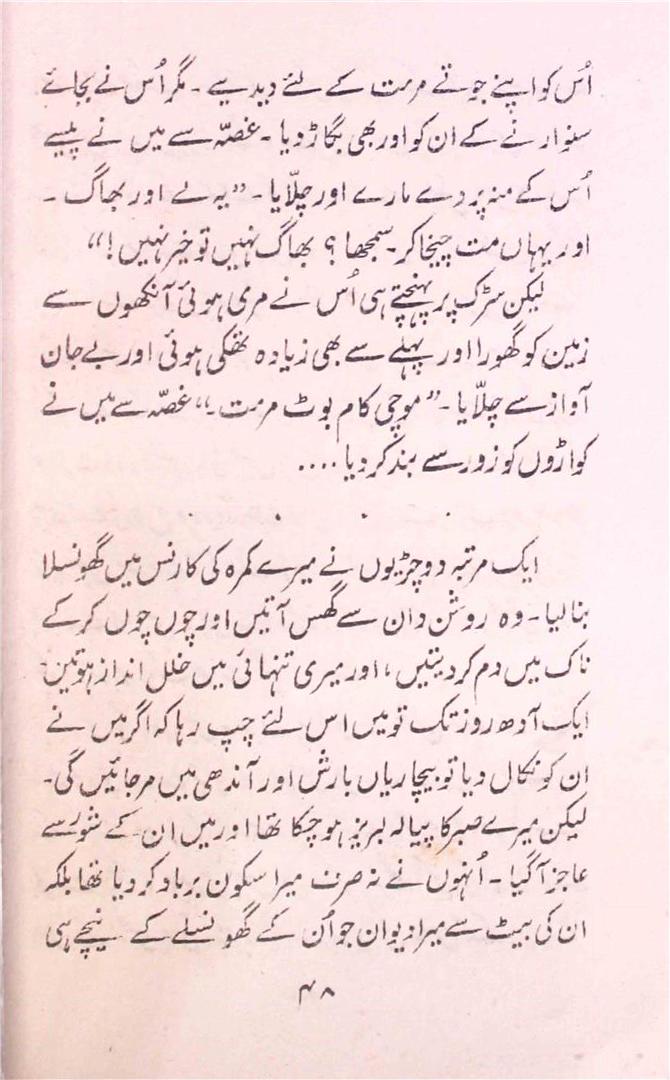 اُس کو اپنے جوتے مرمت کے لئے دیدیے ۔ مگر اُس نے بجائے
سنوارنے کے ان کو اور بھی بگاڑ دیا ۔ غصّہ سے میں نے پیسے
اُس کے منہ پر دے مارے اور چلّایا ۔ ”یہ لے اور بھاگ ۔
اور یہاں مت چیخا کر ۔ سمجھا ؟ بھاگ نہیں تو خیر نہیں !“
لیکن سڑک پر پہنچتے ہی اُس نے مری ہوئی آنکھوں سے
زمین کو گھورا اور پہلے سے بھی زیادہ تھکی ہوئی اور بے جان
آواز سے چلّایا ۔ ”موچی کام بوٹ مرمت ۔“ غصّہ سے میں نے
کواڑوں کو زور سے بند کر دیا ....
. . . .
ایک مرتبہ دو چڑیوں نے میرے کمرہ کی کارنس میں گھونسلا
بنا لیا ۔ وہ روشن دان سے گھس آتیں اور چوں چوں کر کے
ناک میں دم کر دیتیں ، اور میری تنہائی میں خلل انداز ہوتیں ۔
ایک آدھ روز تک تو میں اس لئے چپ رہا کہ اگر میں نے
ان کو نکال دیا تو بیچاریاں بارش اور آندھی میں مر جائیں گی ۔
لیکن میرے صبر کا پیالہ لبریز ہو چکا تھا اور میں ان کے شور سے
عاجز آ گیا ۔ اُنہوں نے نہ صرف میرا سکون برباد کر دیا تھا بلکہ
ان کی بیٹ سے میرا دیوان جو اُن کے گھونسلے کے نیچے ہی
۴۸